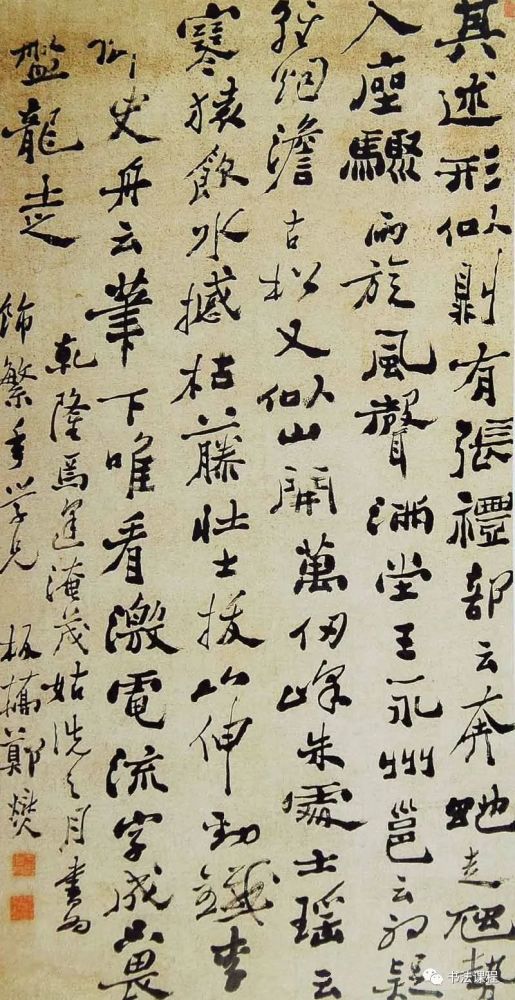 其述形似則有張禮部云奔虵走虺勢
入座驟雨旋風聲滿堂王永州邕云初疑
輕烟澹古松又似山開萬仞峰朱處士瑶云
寒猿飲水撼枯藤壯士拔山伸勁鐵李
御史舟云筆下唯看激電流字成只畏
盤龍走
乾隆焉逢淹茂姑洗之月書為
飾繁年學兄 板橋鄭燮
书法课程